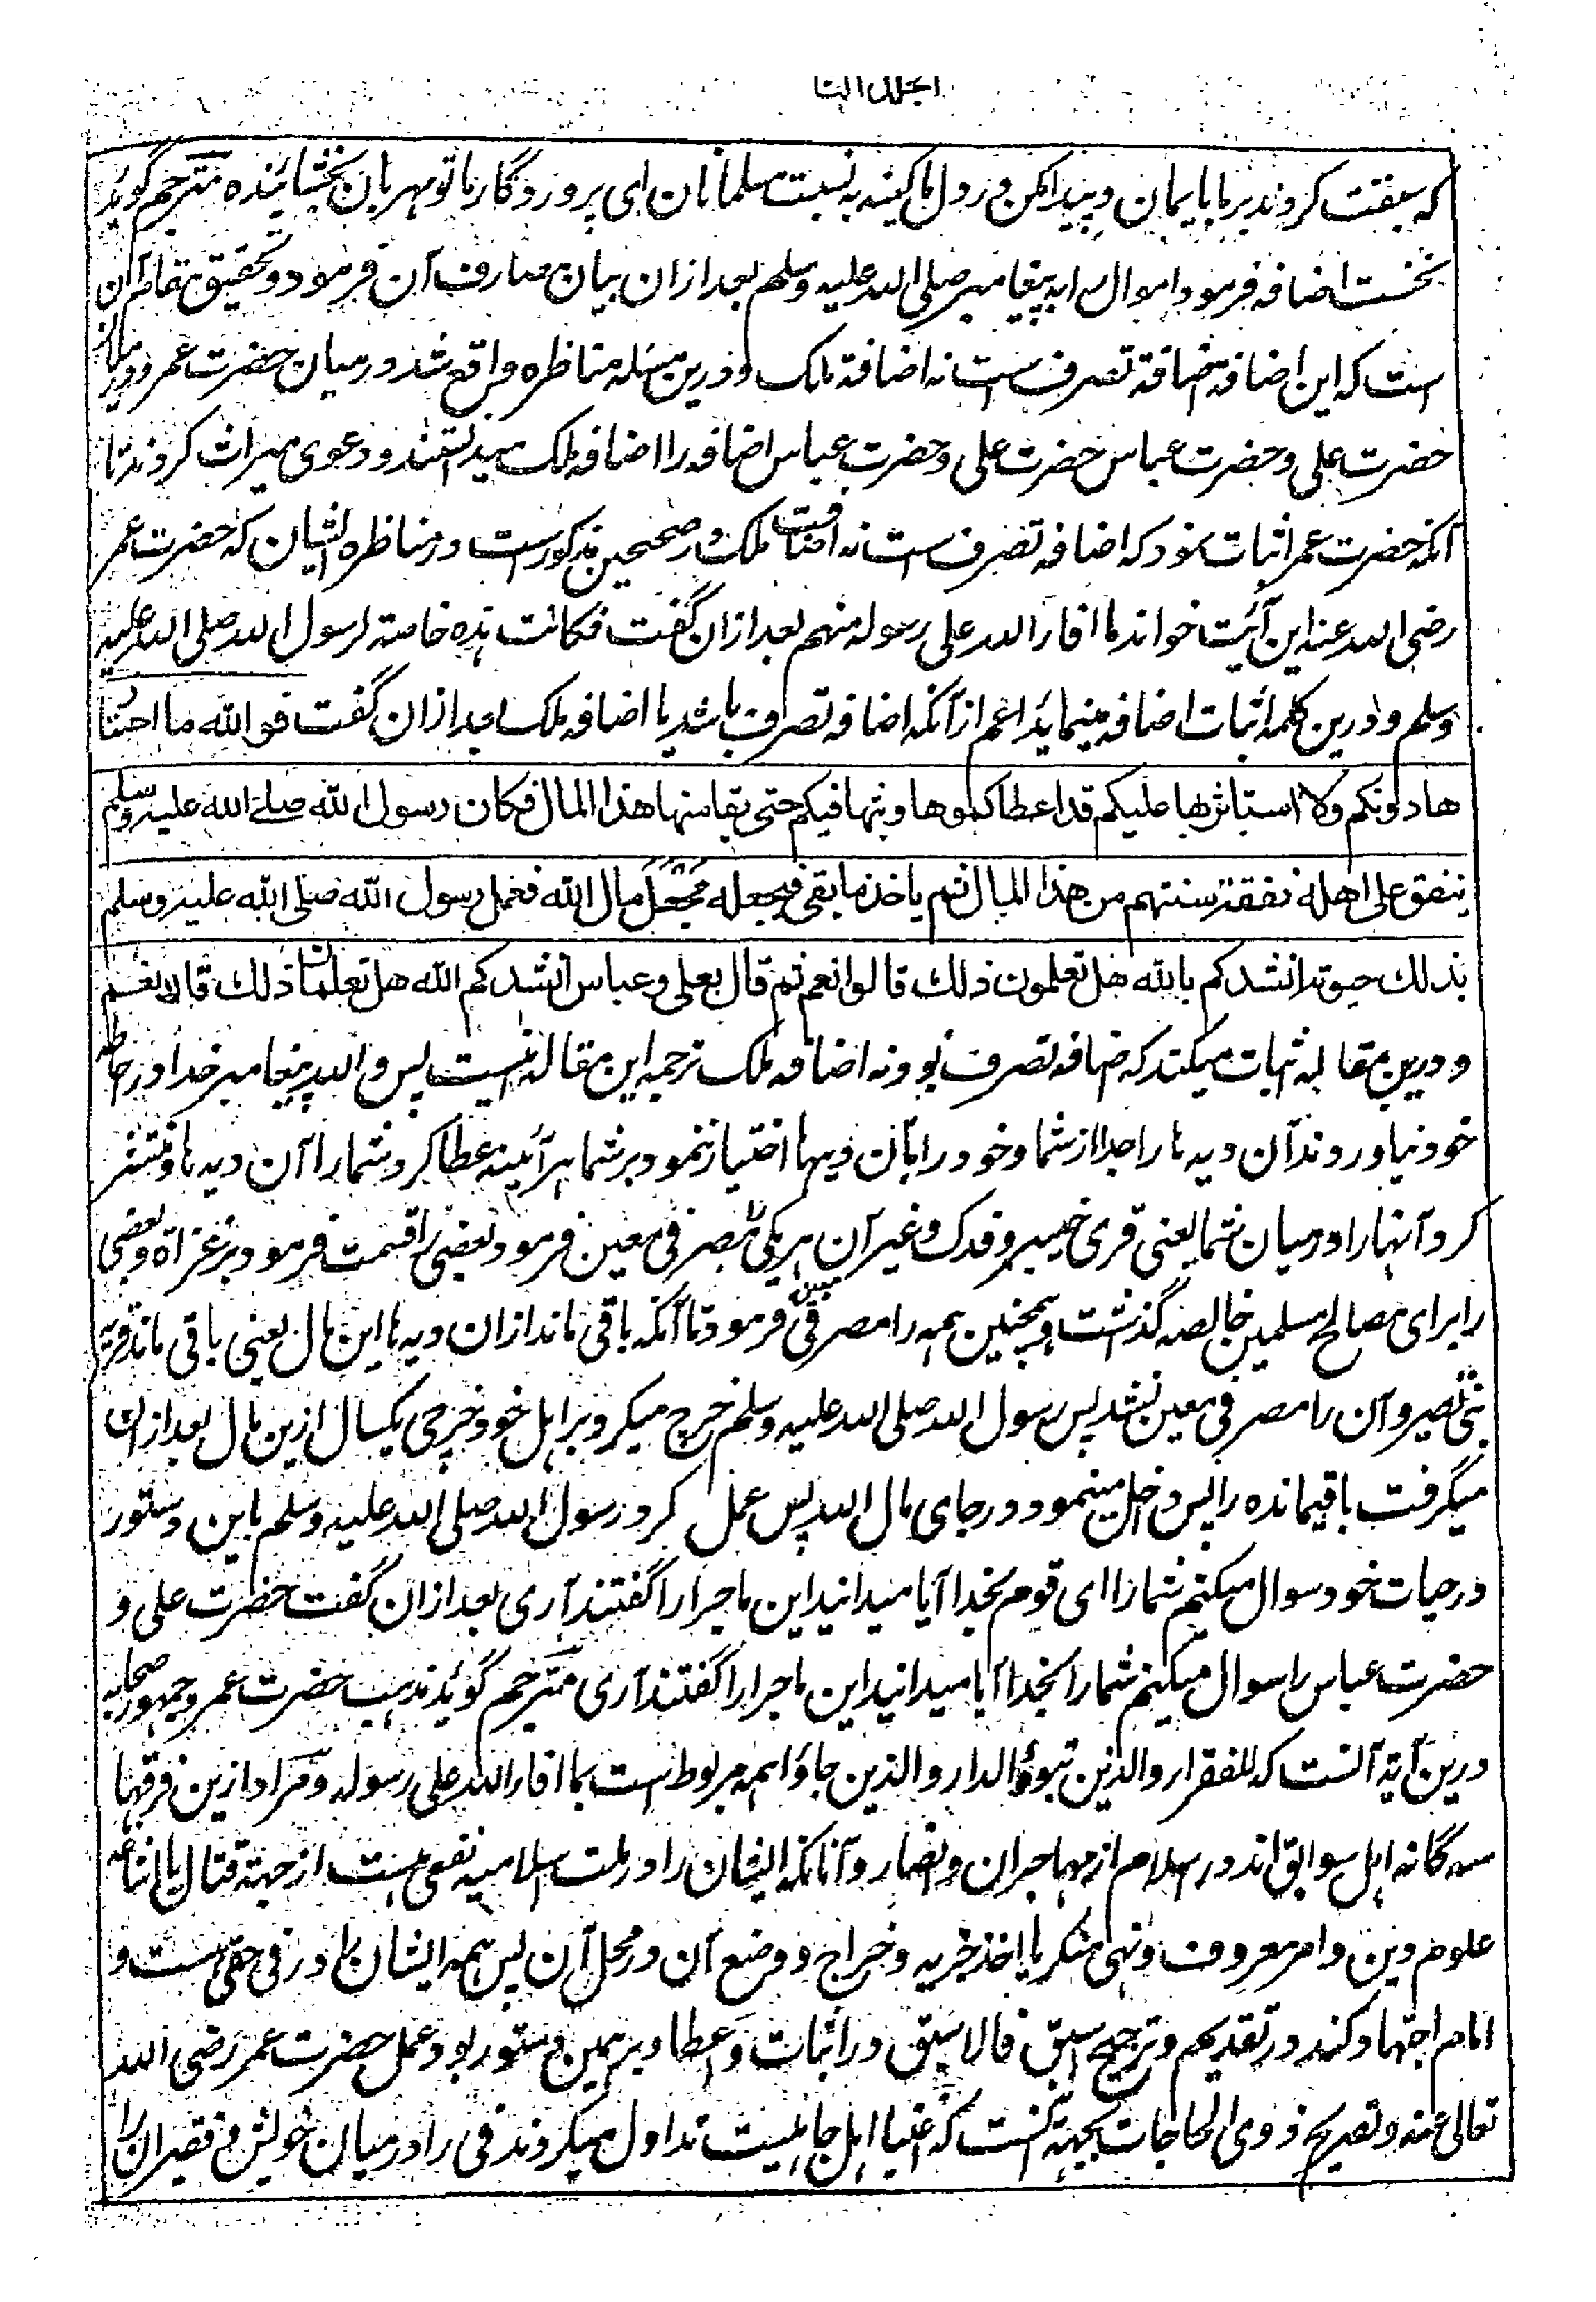 الجلد الثا
که سبقت کردند بر ما بایمان و پیدا مکن در دل ما کینه به نسبت مسلمانان ای پروردگار ما تو مهربان بخشاینده مترجم گوید
نخست اضافه فرمود اموال را به پیغامبر صلی الله علیه وسلم بعد ازان بیان مصارف آن فرمود و تحقیق مقام آن
است که این اضافة اضافة تصرف ست نه اضافة ملک و درین مسئله مناظره واقع شد درمیان حضرت عمر و درمیان
حضرت علی و حضرت عباس حضرت علی و حضرت عباس اضافه را اضافه ملک میدانستند و دعوی میراث کردند تا
آنکه حضرت عمر اثبات نمود که اضافه تصرف ست نه اضافت ملک در صحیحین مذکورست در مناظره ایشان که حضرت عمر
رضی الله عنه این آیت خواند ما افاء الله علی رسوله منهم بعد ازان گفت فکانت هذه خاصة لرسول الله صلی الله علیه
وسلم و درین کلمه اثبات اضافه مینماید اعم ازآنکه اضافه تصرف باشد یا اضافه ملک بعد ازان گفت فوالله ما احتا
هادونکم ولا استأثر بها علیکم قد اعطاکموها وبثها فیکم حتی بقا منها هذا المال فکان رسول الله صلے الله علیه وسلم
ینفق علی اهله نفقة سنتهم من هذا المال ثم یاخذ ما بقی فیجعله مجعل مال الله فعمل رسول الله صلی الله علیه وسلم
بذلك حیوته انشدکم بالله هل تعلمون ذلك قالوا نعم ثم قال بعلی وعباس انشدکم الله هل تعلمان ذلك قالا نعم
و درین مقاله اثبات میکند که اضافه تصرف بود نه اضافه ملک ترجمه این مقاله اینست پس والله پیغامبر خدا در احاطه
خود نیاوردند آن دیه ها را جدا از شما و خود را بآن دیهها اختیار ننمود بر شما هرآئینه عطا کرد شما را آن دیه ها و منتشر
کرد آنها را درمیان شما یعنی قری خیبر و فدک و غیر آن هر یکی بمصرفی معین فرمود بعضی را قسمت فرمود بر غزاة و بعضی
را برای مصالح مسلمین خالصه گذشت و همچنین همه را مصرفی معین فرمود تا آنکه باقی ماند ازان دیه ها این مال یعنی باقی ماند قریه
بنی نضیر و آن را مصرفی معین نشد پس رسول الله صلی الله علیه وسلم خرچ میکرد بر اهل خود خرچی یکسال ازین مال بعد ازان
میگرفت باقیمانده را پس داخل مینمود در جای مال الله پس عمل کرد رسول الله صلی الله علیه وسلم باین دستور
در حیات خود سوال میکنم شما را ای قوم بخدا آیا میدانید این ماجرا را گفتند آری بعد ازان گفت حضرت علی و
حضرت عباس را سوال میکنم شما را بخدا آیا میدانید این ماجرا را گفتند آری مترجم گوید مذهب حضرت عمر و جمهور صحابه
درین آیة آنست که للفقراء والذین تبوؤا الدار والذین جاؤا همه مربوط است بما افاء الله علی رسوله و مراد ازین فرقها
سه گانه اهل سوابق اند در اسلام از مهاجران و انصار و آنانکه ایشان را در ملت اسلامیه نفعی هست از جهة قتال یا اشاعه
علوم دین و امر معروف و نهی منکر یا اخذ جزیه و خراج و وضع آن در محل آن پس همه ایشان را در فی حقی هست و
امام اجتهاد کند در تقدیم و ترجیح اسبق فالاسبق در اثبات و اعطا و بر همین دستور بود عمل حضرت عمر رضی الله
تعالی عنه و تصریح ذوی الحاجات بجهة آنست که اغنیا اهل جاهلیت تداول میکردند فی را درمیان خویش و فقیران را